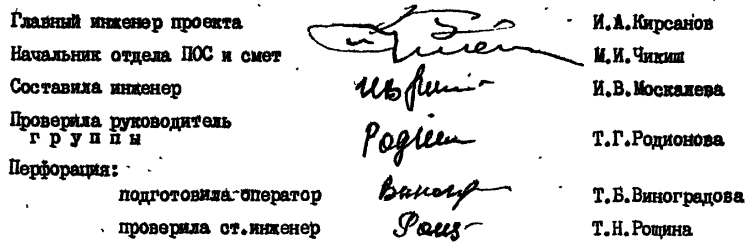 Главный инженер проекта И.А.Кирсанов
Начальник отдела ПОС и смет М.И.Чикиш
Составила инженер И.В.Москалева
Проверила руководитель
группы Т.Г.Родионова
Перфорация:
подготовила оператор Т.Б.Виноградова
проверила ст.инженер Т.Н.Рощина